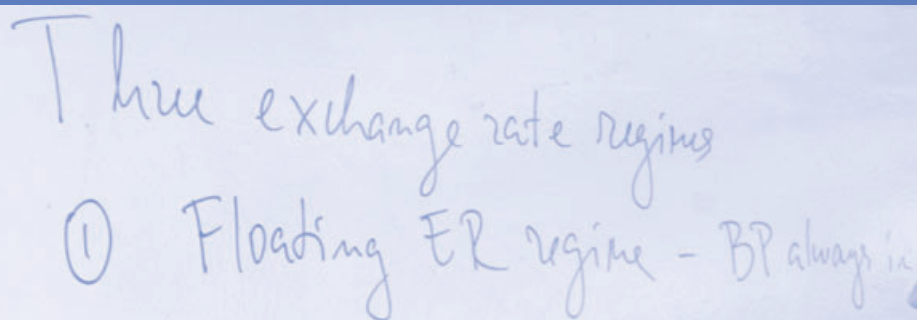 Three exchange rate regimes
① Floating ER regime - BP always in